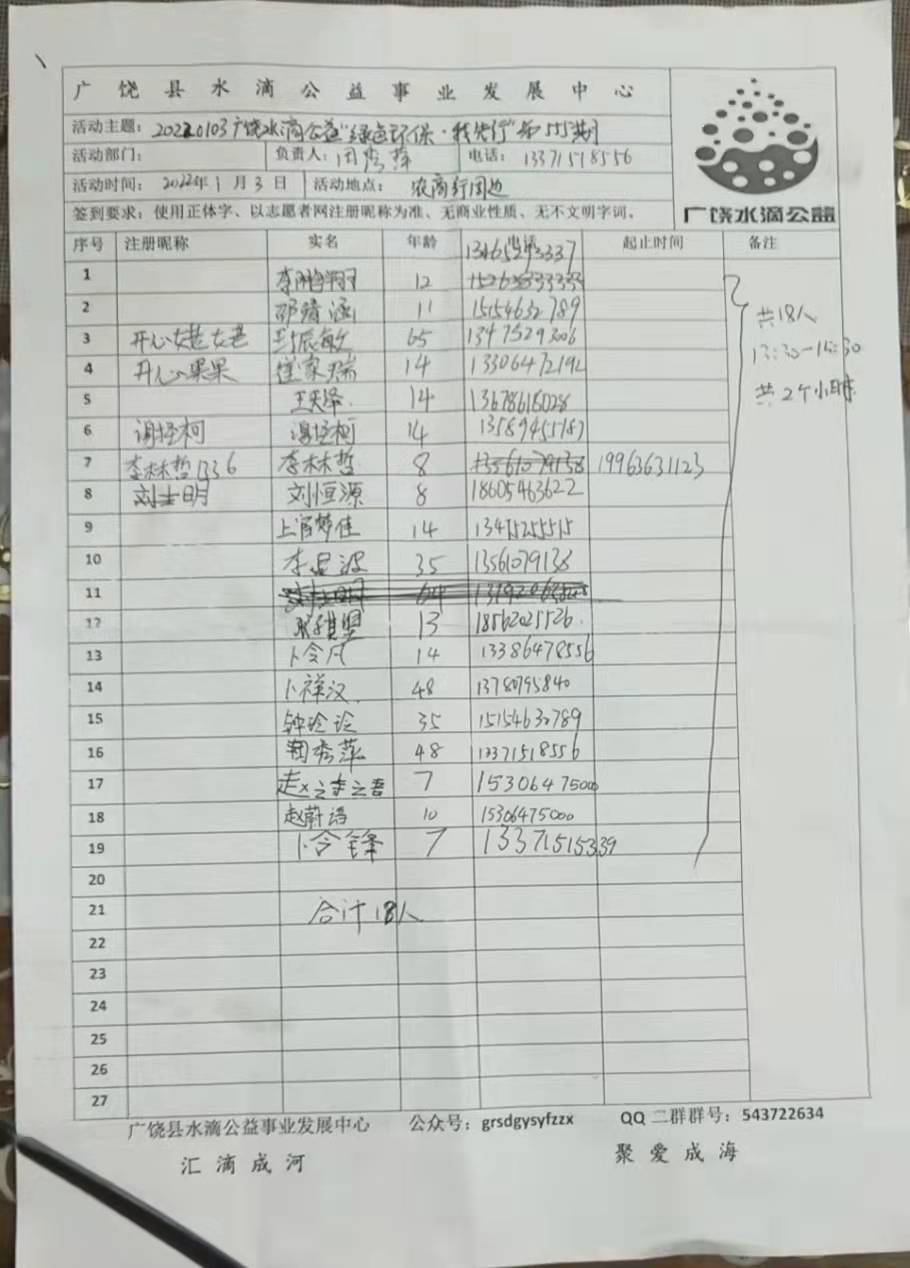 广饶县水滴公益事业发展中心
活动主题：20220103广饶水滴公益“绿色环保·我先行”第155期
活动部门： 负责人：闫秀萍 电话：13371518556
活动时间：2022年1月3日 活动地点：农商行周边
签到要求：使用正体字、以志愿者网注册昵称为准、无商业性质、无不文明字词。
广饶水滴公益
序号 注册昵称 实名 年龄 起止时间 备注
13465293337
1 李鹏翔 12
2 邵靖涵 11 15154632789
3 开心姥姥 65 13475293006
4 开心果果 崔家瑞 14 13306472192
5 王天泽 14 13678615028
6 谢泾柯 谢泾柯 14 13589455187
7 李林哲1336 李林哲 8 13561079138 19963631123
8 刘士明 刘恒源 8 18605463622
9 上官梦佳 14 13475255515
10 李显波 35 13561079138
11 刘士明 64
12 13 18562025526
13 卜令凡 14 13386478556
14 卜祥汉 48 13780795840
15 钟玲玲 35 15154632789
16 闫秀萍 48 13371518556
17 7 15306475000
18 赵蔚语 10 15306475000
19 卜令锋 7 13371515339
20
21 合计18人
22
23
24
25
26
27
共18人
13:30-15:30
共2个小时
广饶县水滴公益事业发展中心 公众号：grsdgysyfzzx QQ二群群号：543722634
汇滴成河 聚爱成海